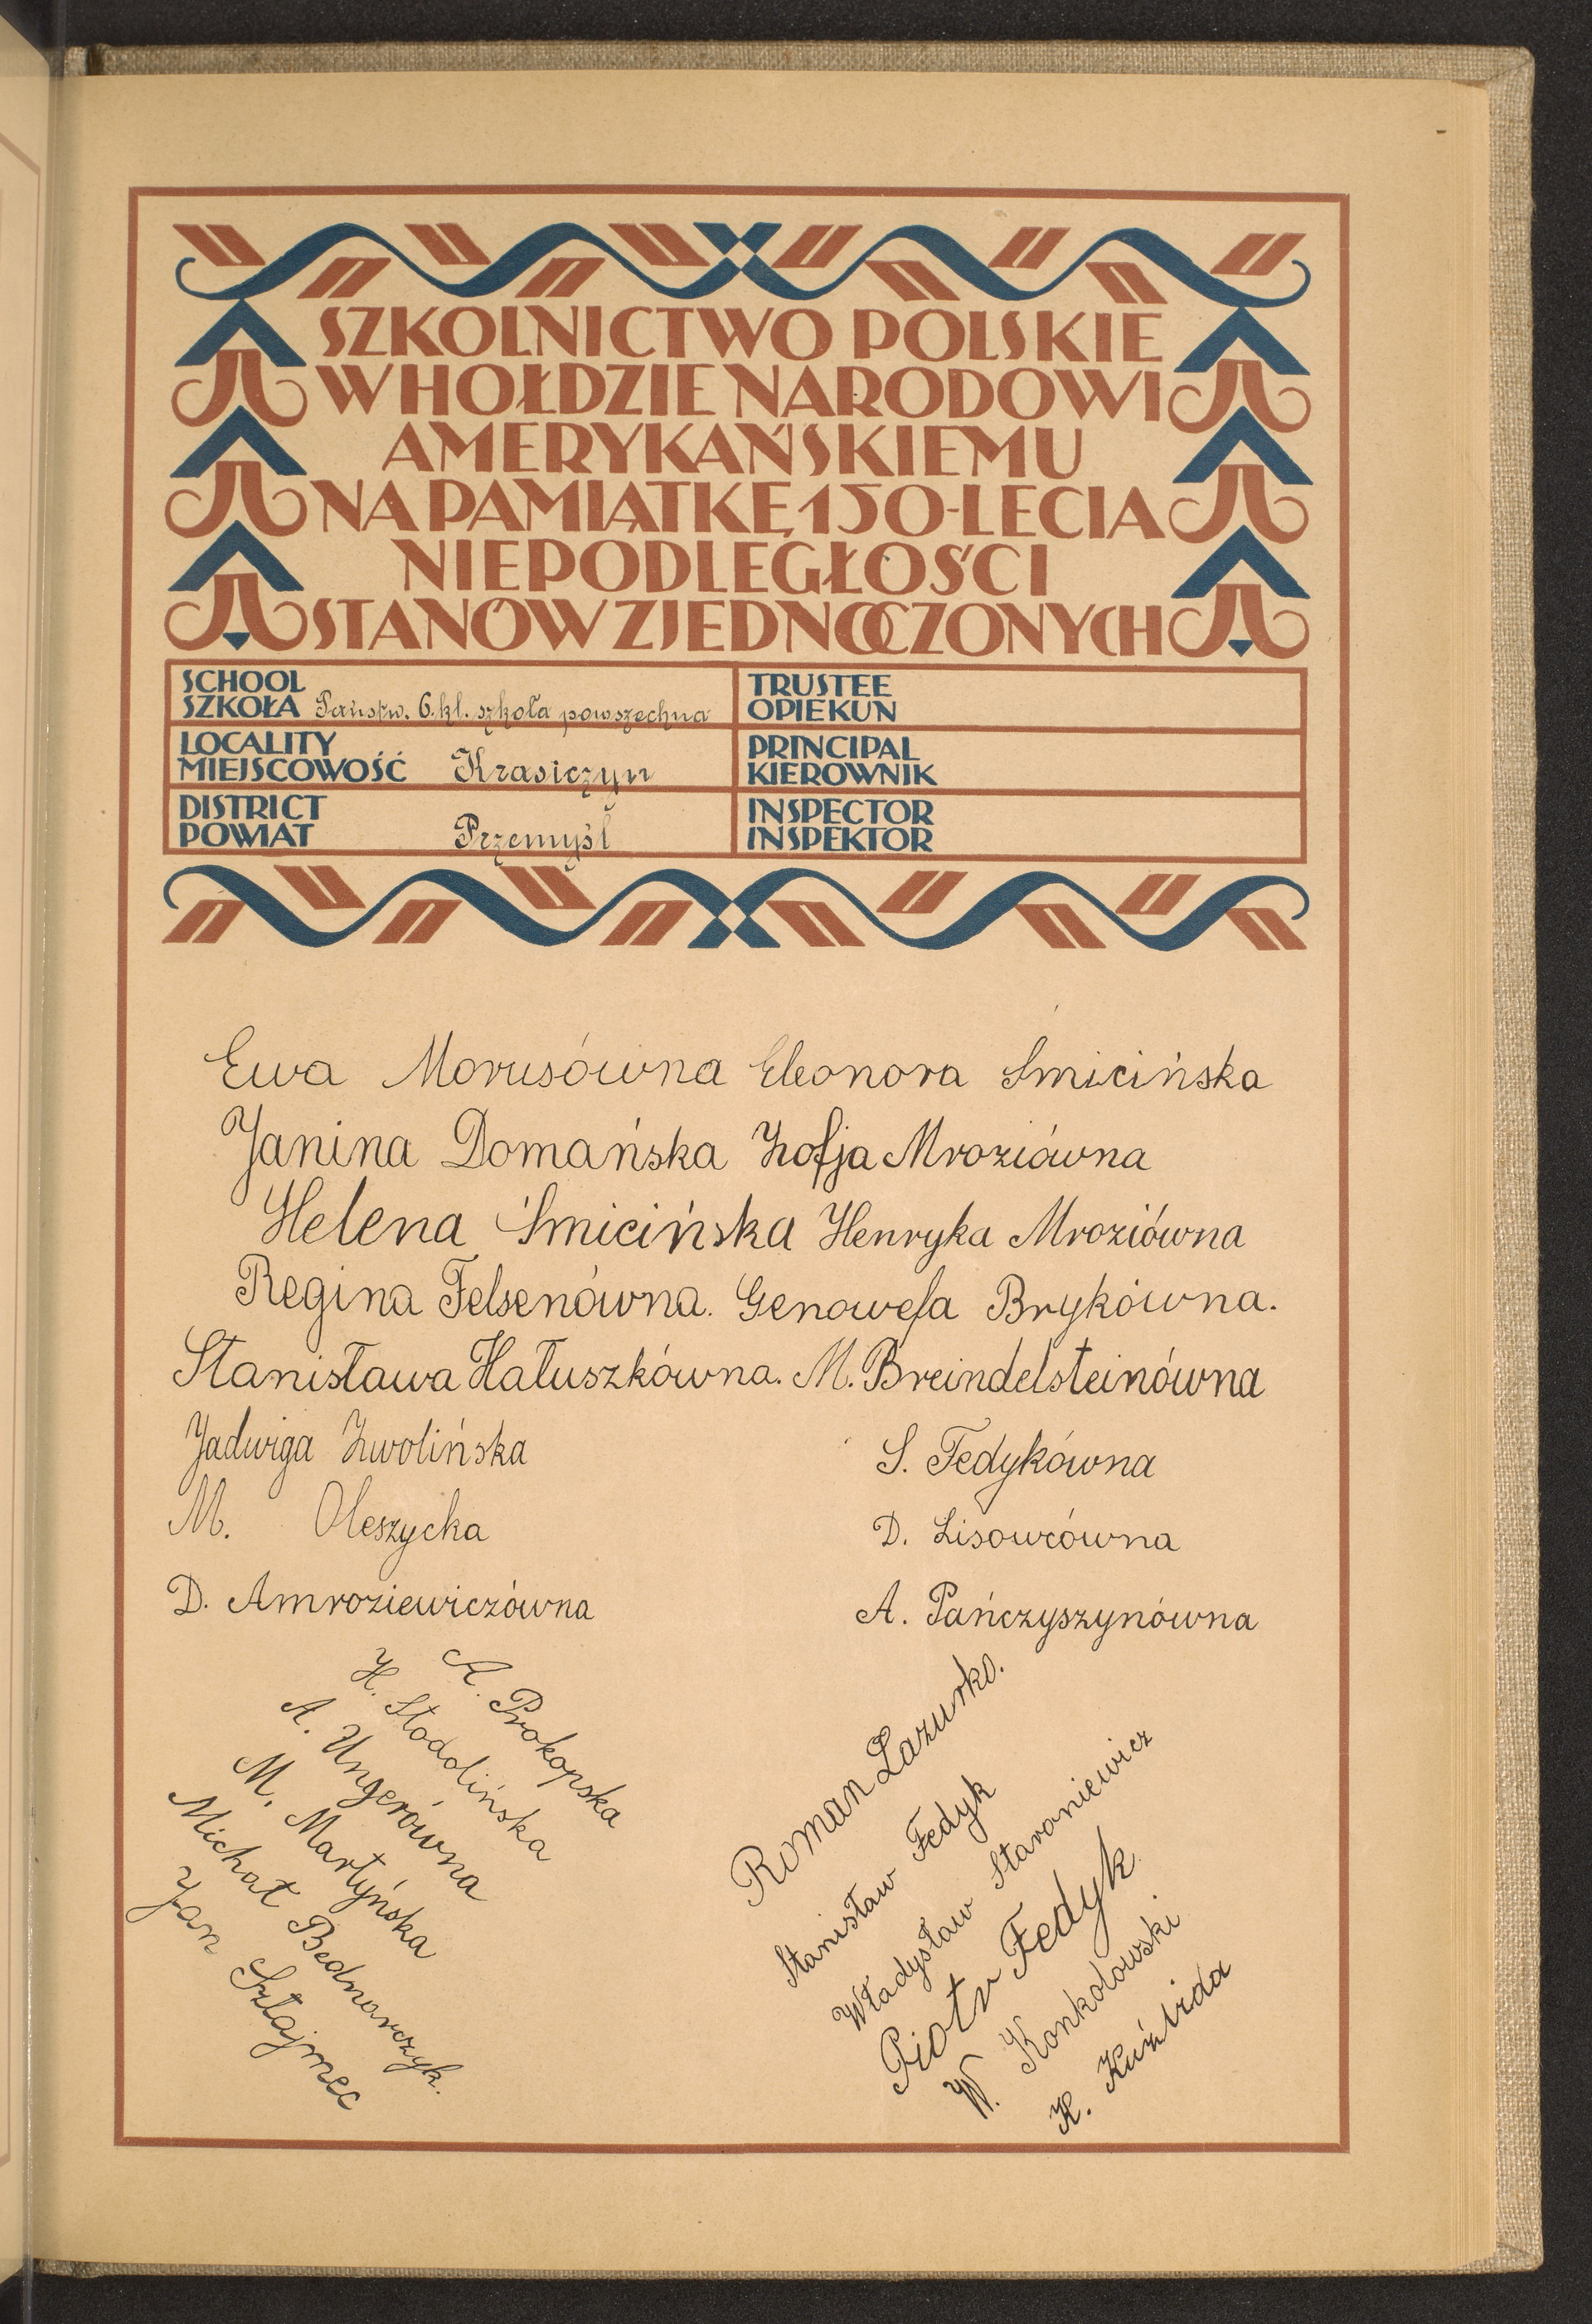 SZKOLNICTWO POLSKIE
W HOŁDZIE NARODOWI
AMERYKAŃSKIEMU
NA PAMIĄTKĘ 150-LECIA
NIEPODLEGŁOŚCI
STANÓW ZJEDNOCZONYCH
SCHOOL
SZKOŁA Państw. 6. kl. szkoła powszechna
LOCALITY
MIEJSCOWOŚĆ Krasiczyn
DISTRICT
POWIAT Przemyśl
TRUSTEE
OPIEKUN
PRINCIPAL
KIEROWNIK
INSPECTOR
INSPEKTOR
Ewa Morusówna Eleonora Śmicińska
Janina Domańska Zofja Mroziówna
Helena Śmicińska Henryka Mroziówna
Regina Felsenówna. Genowefa Brykówna.
Stanisława Hałuszkówna. M. Breindelsteinówna
Jadwiga Zwolińska S. Fedykówna
M. Oleszycka D. Lisowcówna
D. Amroziewiczówna A. Pańczyszynówna
A. Prokopska
H. Stodolińska
A. Ungerówna
M. Martyńska
Michał Bednarczyk.
Jan Sztajmec
Roman Łazurko.
Stanisław Fedyk
Władysław Staroniewicz
Piotr Fedyk
W. Konkolowski
K. Kuźbida